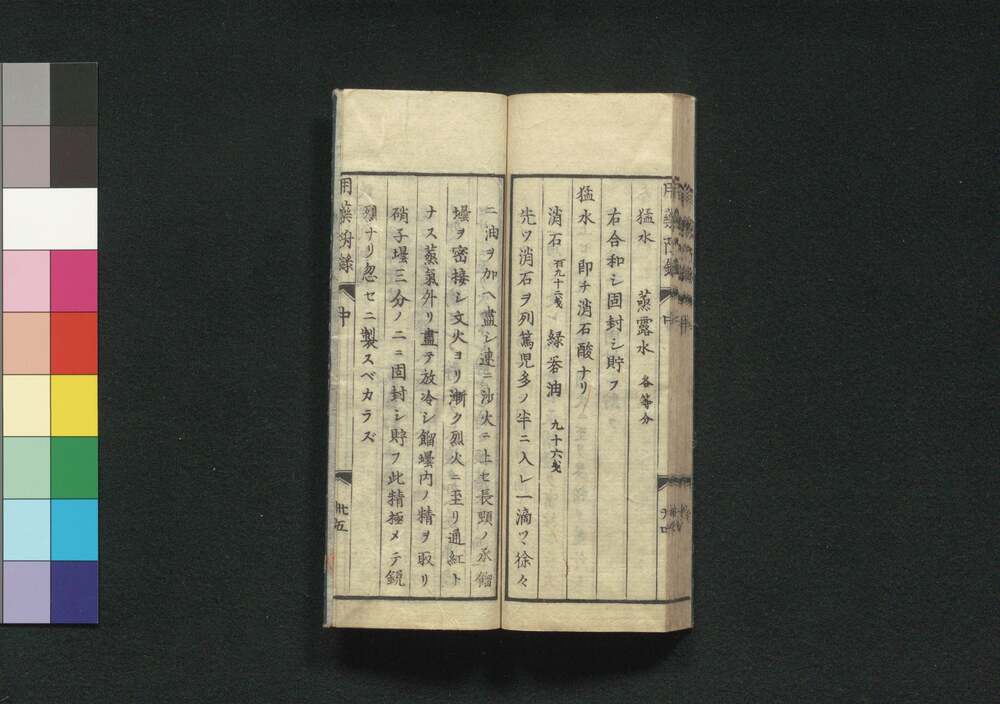 猛水 蒸露水 各等分
右合和シ固封シ貯フ
猛水 即チ消石酸ナリ
消石 百九十二戔 緑礬油 九十六戔
先ツ消石ヲ列篤児多ノ半ニ入レ一滴ツヽ徐々
ニ油ヲ加ヘ盡シ速ニ沙火ニ上セ長頸ノ承餾
壜ヲ密接シ文火ヨリ漸ク烈火ニ至リ通紅ト
ナス蒸氣外リ盡テ放冷シ餾壜内ノ精ヲ取リ
硝子壜三分ノ二ニ固封シ貯フ此精極メテ鋭
烈ナリ忽セニ製スベカラズ
用藥附録 中 卅五